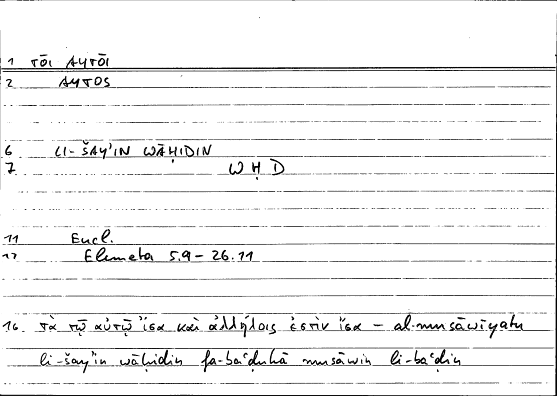 1 TŌI AYTŌI
2 AYTOS
6 LI-ŠAY'IN WĀḤIDIN
7 WḤD
11 Eucl.
12 Elementa 5.9-26.11
16. τὰ τῷ αὐτῷ ἴσα καὶ ἀλλήλοις ἐστὶν ἴσα - al-musāwīyatu
li-šay'in wāḥidin fa-baʿḍuhā musāwin li-baʿḍin